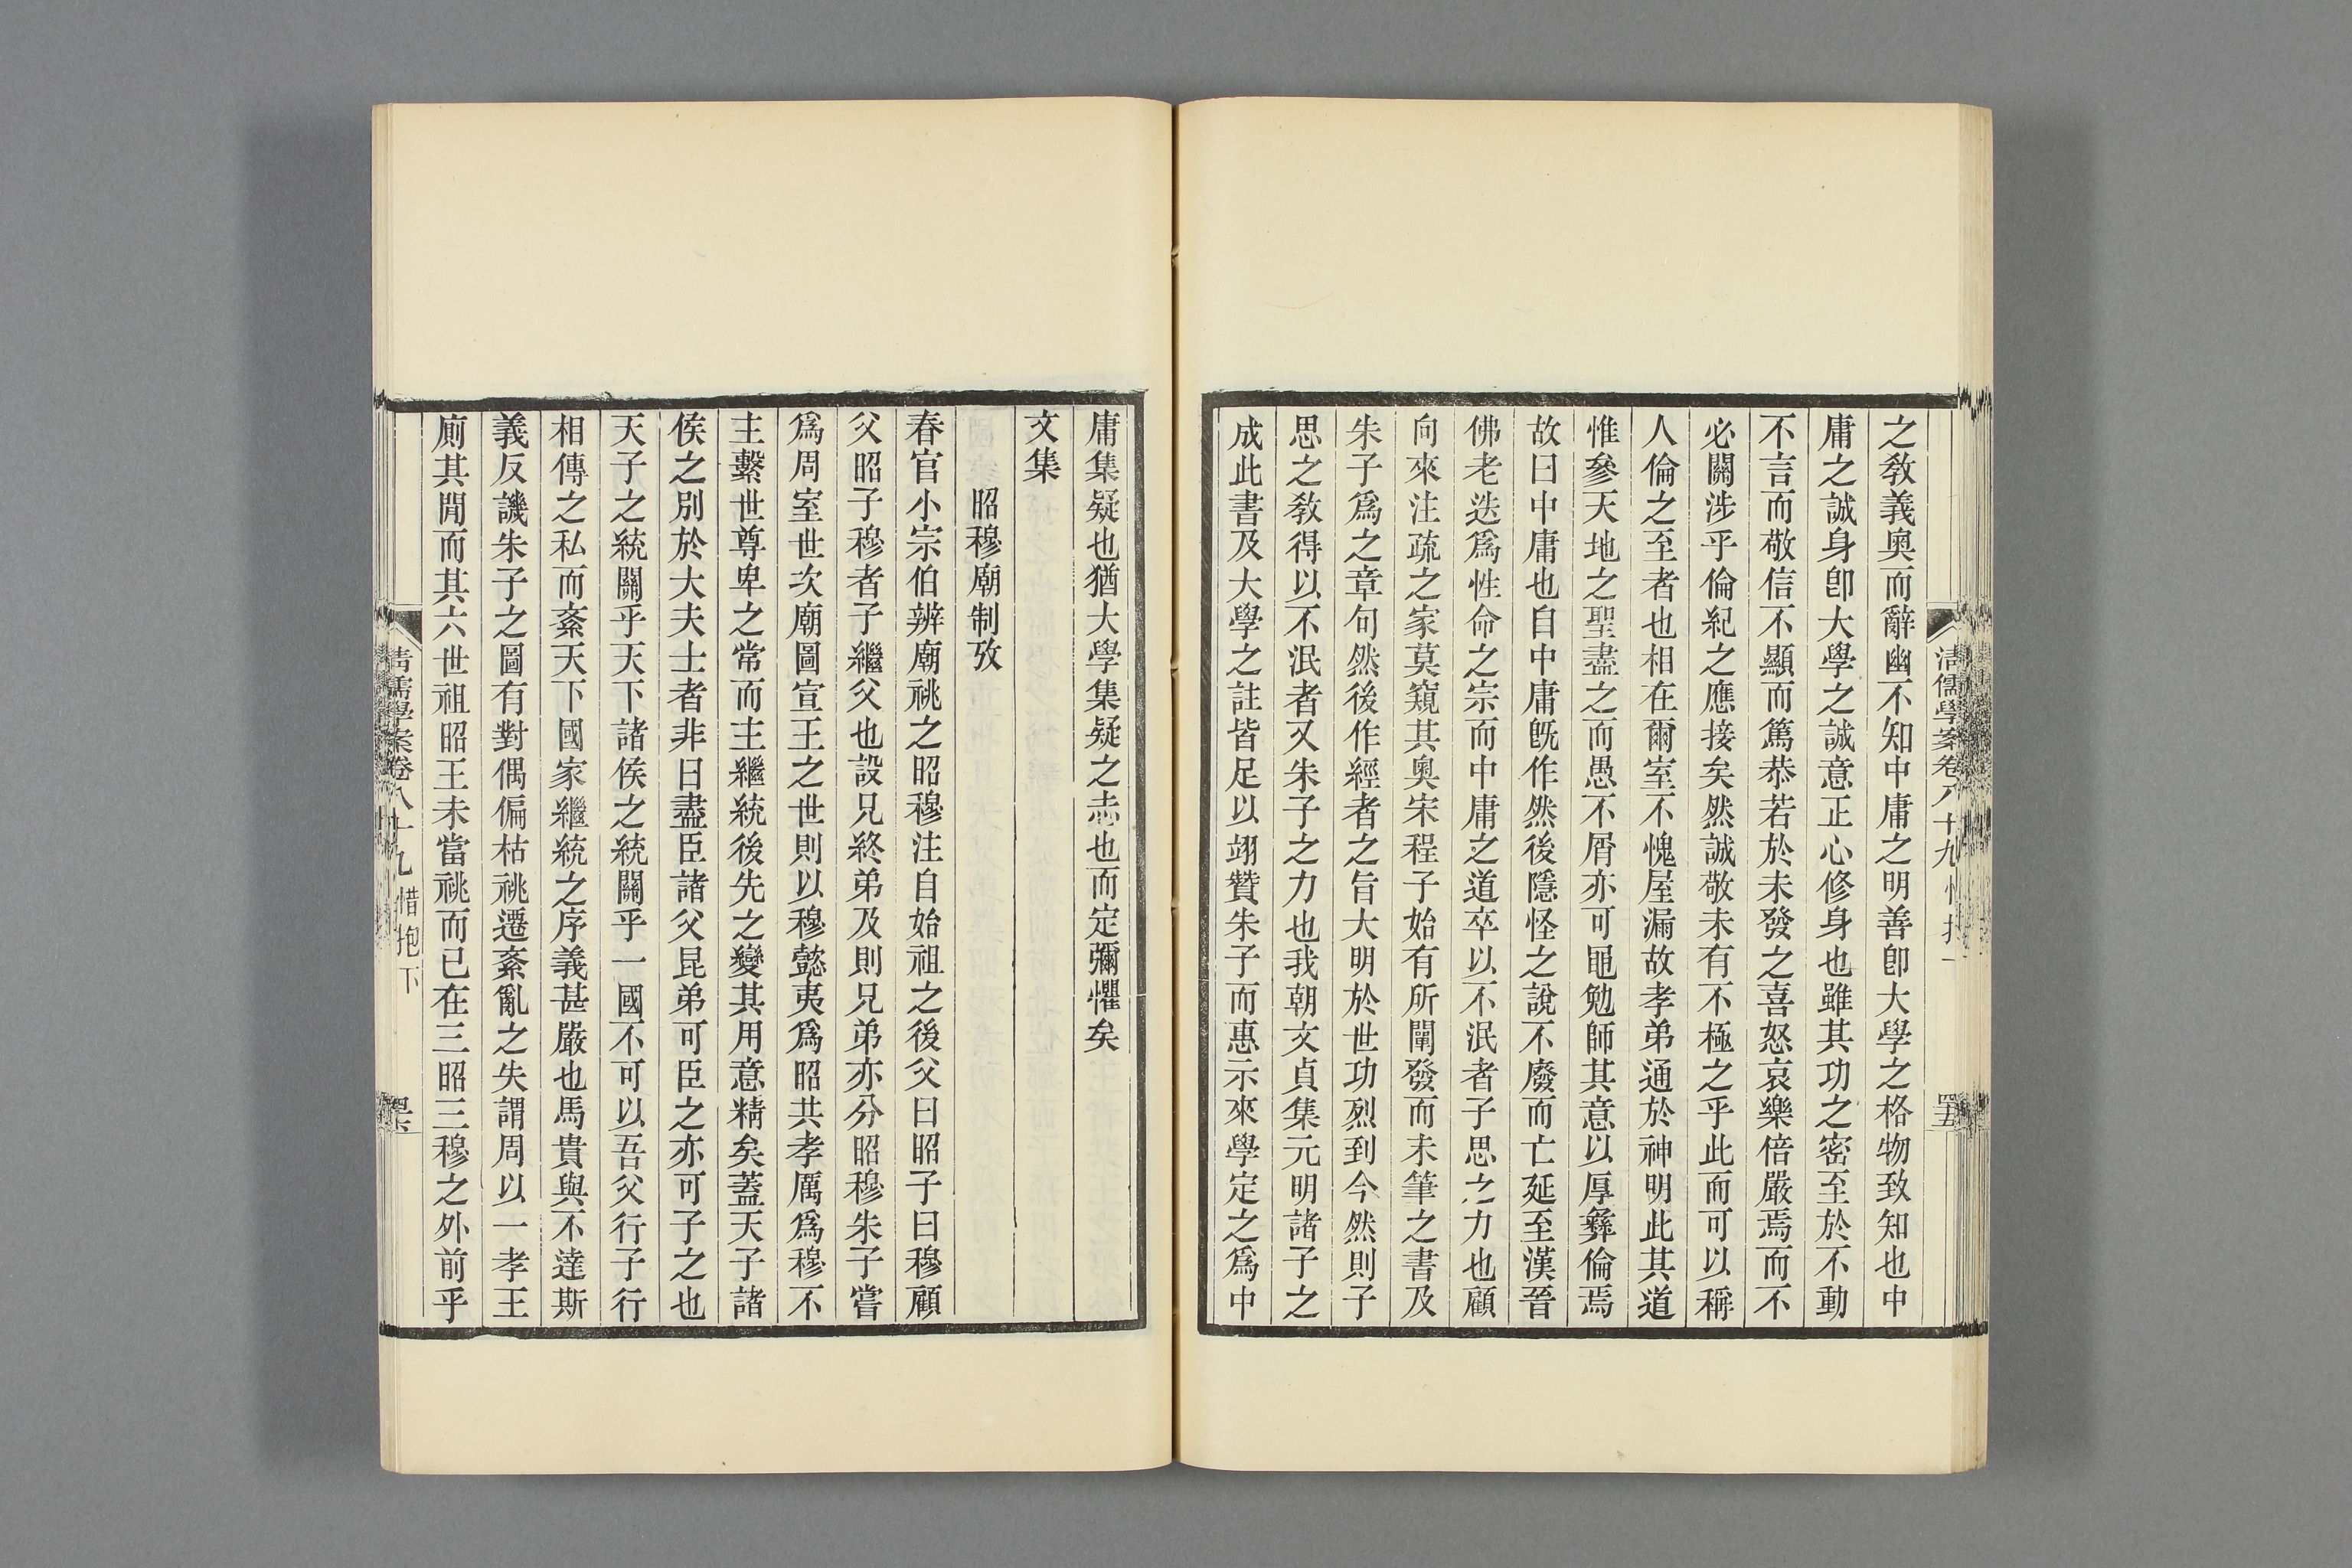 之敎義奧而辭幽不知中庸之明善卽大學之格物致知也中
庸之誠身卽大學之誠意正心修身也雖其功之密至於不動
不言而敬信不顯而篤恭若於未發之喜怒哀樂倍嚴焉而不
必關涉乎倫紀之應接矣然誠敬未有不極之乎此而可以稱
人倫之至者也相在爾室不愧屋漏故孝弟通於神明此其道
惟參天地之聖盡之而愚不屑亦可黽勉師其意以厚彝倫焉
故曰中庸也自中庸旣作然後隱怪之說不廢而亡延至漢晉
佛老迭爲性命之宗而中庸之道卒以不泯者子思之力也顧
向來注疏之家莫窺其奧宋程子始有所闡發而未筆之書及
朱子爲之章句然後作經者之旨大明於世功烈到今然則子
思之敎得以不泯者又朱子之力也我朝文貞集元明諸子之
成此書及大學之註皆足以翊贊朱子而惠示來學定之爲中
清儒學案卷八十九
罣
庸集疑也猶大學集疑之志也而定彌懼矣
文集
昭穆廟制攷
春官小宗伯辨廟祧之昭穆注自始祖之後父曰昭子曰穆顧
父昭子穆者子繼父也設兄終弟及則兄弟亦分昭穆朱子嘗
爲周室世次廟圖宣王之世則以穆懿夷爲昭共孝厲爲穆不
主繫世尊卑之常而主繼統後先之變其用意精矣蓋天子諸
侯之別於大夫士者非曰盡臣諸父昆弟可臣之亦可子之也
天子之統關乎天下諸侯之統關乎一國不可以吾父行子行
相傳之私而紊天下國家繼統之序義甚嚴也馬貴與不達斯
義反譏朱子之圖有對偶偏枯祧遷紊亂之失謂周以一孝王
廁其閒而其六世祖昭王未當祧而已在三昭三穆之外前乎
清儒學案卷八十九 惜抱下